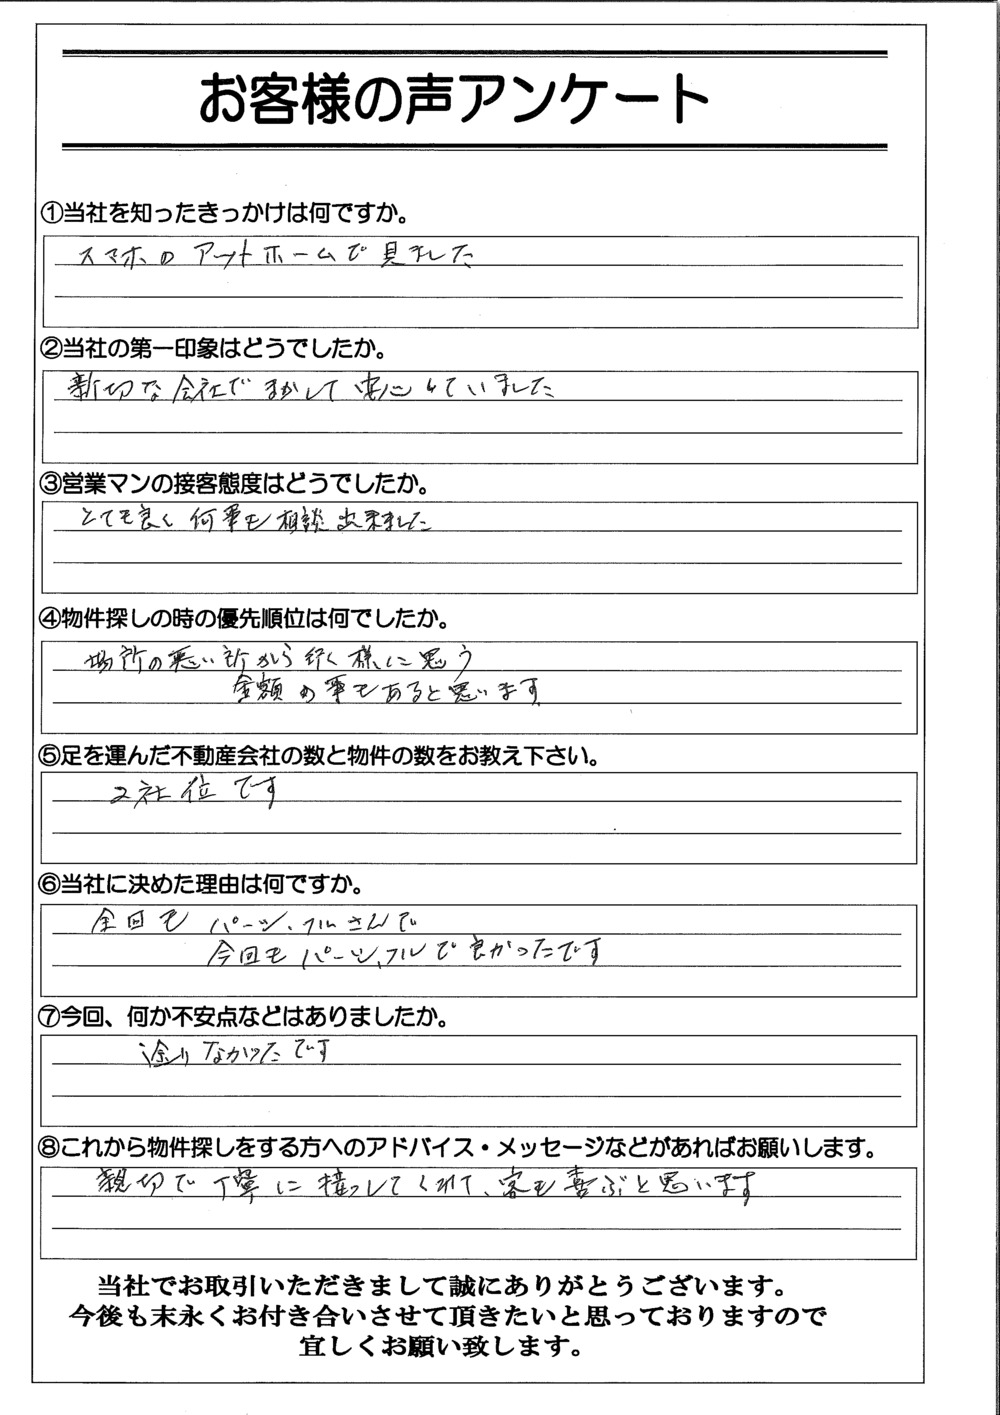 お客様の声アンケート
①当社を知ったきっかけは何ですか。
スマホの アットホームで 見ました
②当社の第一印象はどうでしたか。
新切な 会社で まかして 安心していました
③営業マンの接客態度はどうでしたか。
とても良く 何事も 相談 出来ました
④物件探しの時の優先順位は何でしたか。
場所の悪い所から行く様に思う
金額の事もあると思います
⑤足を運んだ不動産会社の数と物件の数をお教え下さい。
2社位です
⑥当社に決めた理由は何ですか。
全回も パーツ、フルさんで
今回も パーツ、フルで良かったです
⑦今回、何か不安点などはありましたか。
なかったです
⑧これから物件探しをする方へのアドバイス・メッセージなどがあればお願いします。
親切で丁寧に接っしてくれて、客も喜ぶと思います
当社でお取引いただきまして誠にありがとうございます。
今後も末永くお付き合いさせて頂きたいと思っておりますので
宜しくお願い致します。